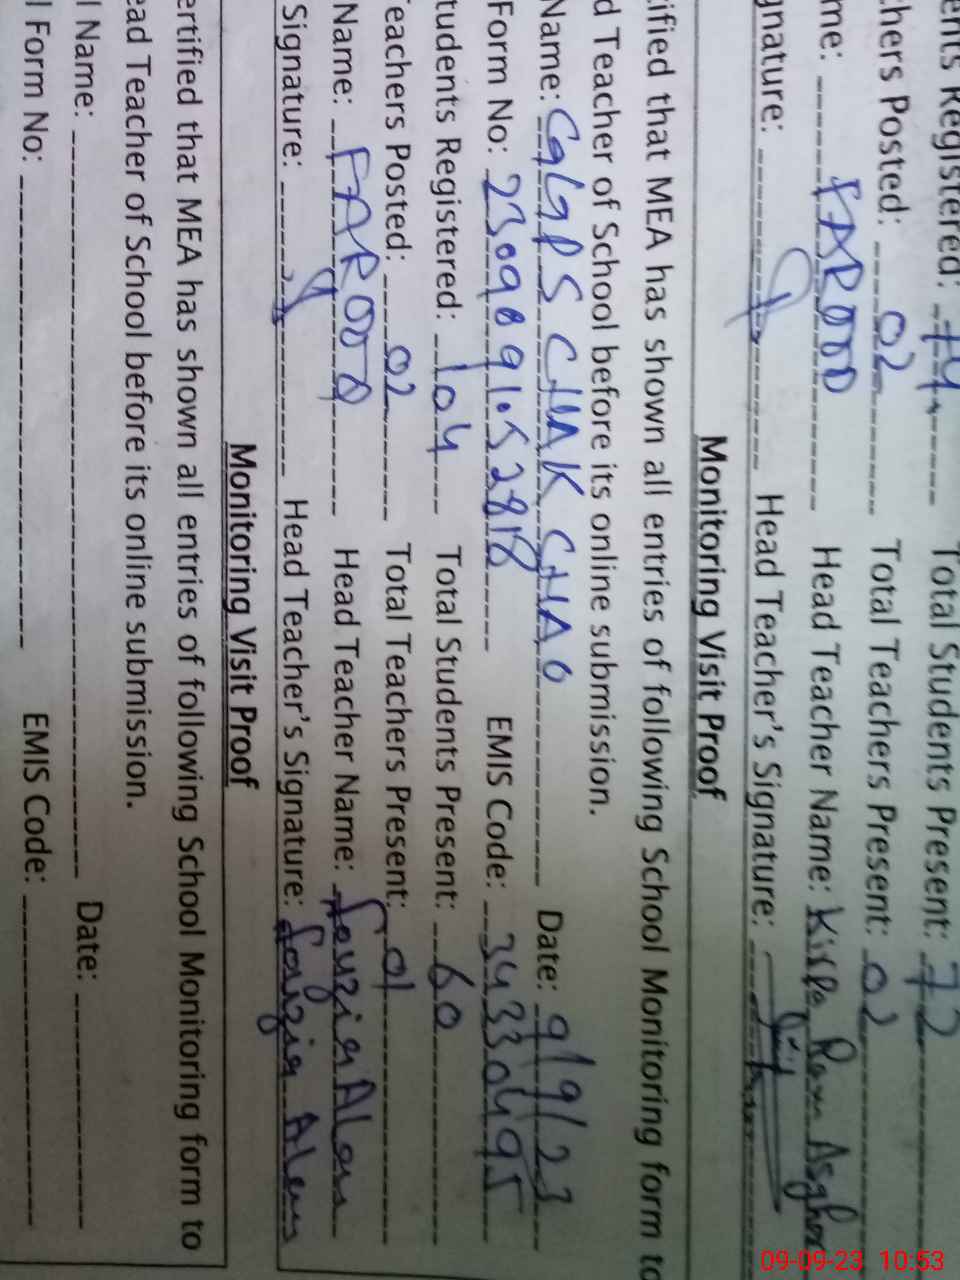 ents Registered: 74 Total Students Present: 72
chers Posted: 02 Total Teachers Present: 02
me: FAROOD Head Teacher Name: Asghar
gnature: Head Teacher's Signature:
Monitoring Visit Proof
tified that MEA has shown all entries of following School Monitoring form to
d Teacher of School before its online submission.
Name: GGPS CHAK SHAO Date: 9/9/23
Form No: 230909 EMIS Code: 34330495
tudents Registered: 104 Total Students Present: 60
eachers Posted: 02 Total Teachers Present: 01
Name: FAROOD Head Teacher Name: Fouzia Alam
Signature: Head Teacher's Signature: Fouzia Alam
Monitoring Visit Proof
ertified that MEA has shown all entries of following School Monitoring form to
ead Teacher of School before its online submission.
l Name: Date:
l Form No: EMIS Code:
09-09-23 10:53